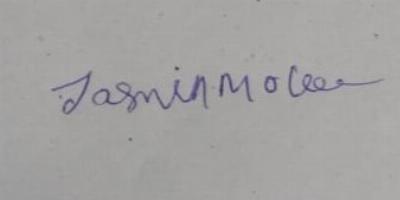 Jasmin Molla